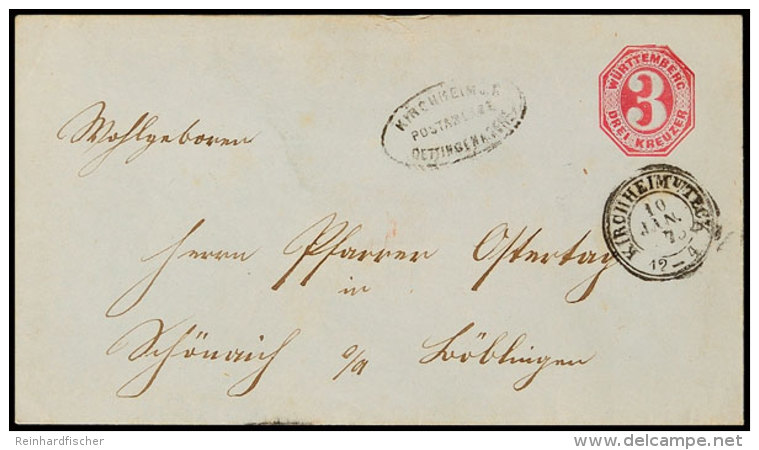 WÜRTTEMBERG
3
DREI KREUZER
KIRCHHEIM U.T.
POSTABLAGE
OETTINGEN
KIRCHHEIM U TECK
10
JAN.
12-4
Wohlgeboren
Herrn Pfarrer Ostertag
in
Schönaich O/A Böblingen
Reinhardfischer
delcampe.net